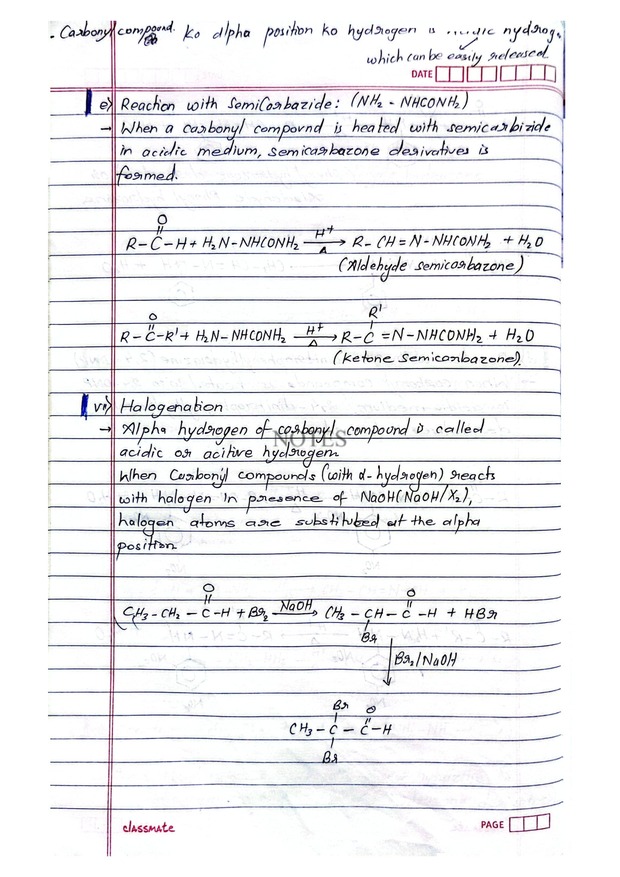 . Carbonyl compound. ko alpha position ko hydrogen is acidic hydrog.
which can be easily released
DATE
e) Reaction with Semicarbazide: (NH2 - NHCONH2)
→ When a carbonyl compound is heated with semicarbizide
in acidic medium, semicarbazone derivatives is
formed.
O
R - C - H + H2N - NHCONH2 H+ Δ → R - CH = N - NHCONH2 + H2O
(Aldehyde semicarbazone)
R'
O
R - C - R' + H2N - NHCONH2 H+ Δ → R - C = N - NHCONH2 + H2O
(ketone semicarbazone).
vii) Halogenation
→ Alpha hydrogen of carbonyl compound is called
NOTES
acidic or acitive hydrogen.
When Carbonyl compounds (with α-hydrogen) reacts
with halogen in presence of NaOH (NaOH/X2),
halogen atoms are substituted at the alpha
position.
O O
CH3 - CH2 - C - H + Br2 NaOH → CH3 - CH - C - H + HBr
Br
Br2/NaOH
Br O
CH3 - C - C - H
Br
classmate
PAGE